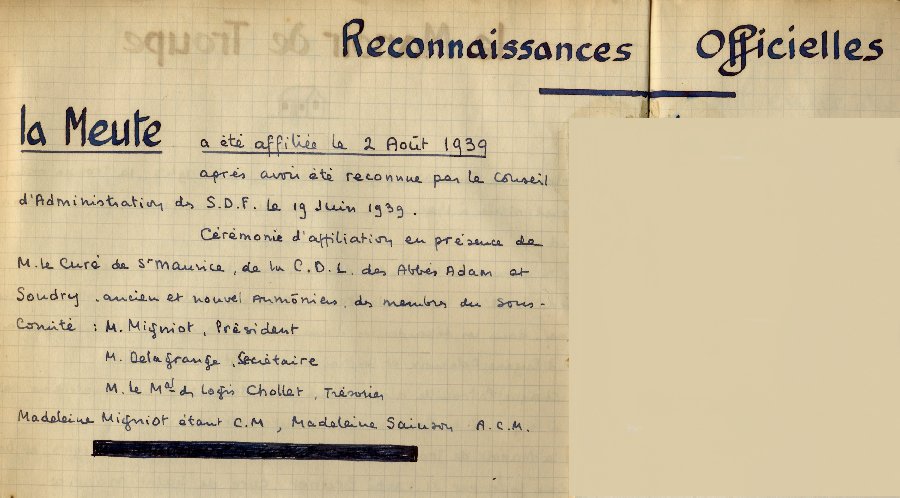 Reconnaissances Officielles
la Meute a été affiliée le 2 Août 1939
après avoir été reconnue par le Conseil
d'Administration des S.D.F. le 19 Juin 1939.
Cérémonie d'affiliation en présence de
M. le Curé de St Maurice, de la C.D.L. des Abbés Adam et
Soudry, ancien et nouvel Aumôniers, des membres du Sous-
Comité : M. Migniot, Président
M. Delagrange, Secrétaire
M. le Mal des Logis Chollet, Trésorier
Madeleine Migniot étant C.M, Madeleine Sainson A.C.M.